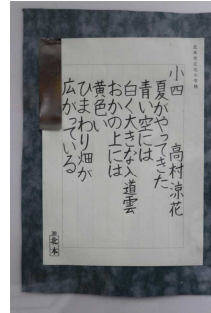 小四　高村涼花
夏がやってきた
青い空には
白く大きな入道雲
おかの上には
黄色い
ひまわり畑が
広がっている
北本